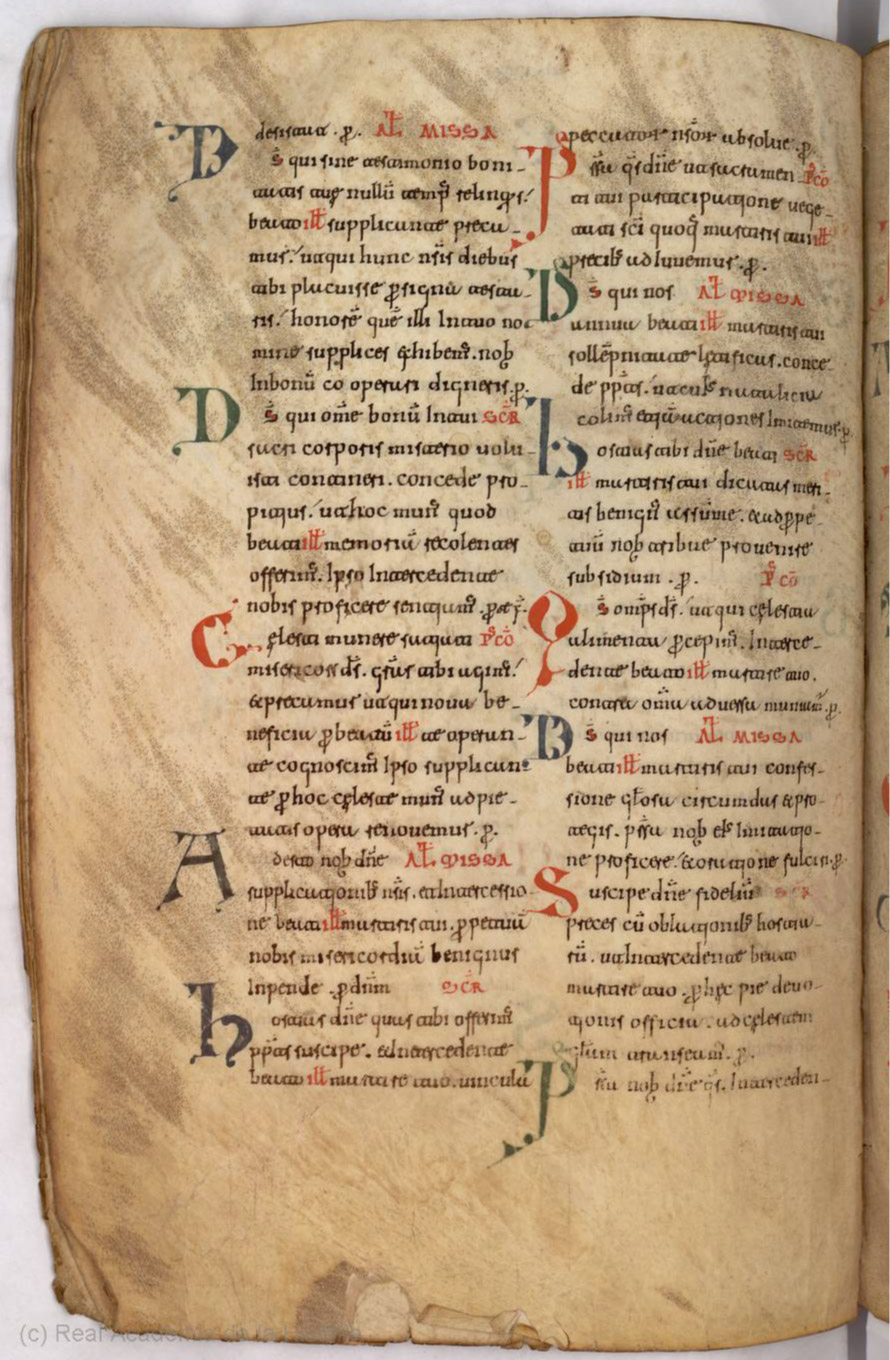 AL MISSA
Ds̄ qui sine testimonio boni-
tatis tue nullū temp̄s relinq̄s
beato ill supplicante preca-
mus. ut qui hunc nr̄is diebus
tibi placuisse p̱ signū testa-
ris. honorē quē illi In tuo no-
mine supplices exhibem̄. nob̄
In bonū co operari digneris. p̱.
Ds̄ qui om̄e bonū In tui SCR̄
sacri corporis misterio volu-
isti contineri. concede pro-
pitius. ut hoc mun̄ quod
beati ill memoriā recolentes
offerim̄. Ipso Intercedente
nobis proficere sentiam̄.
Celesti munere satiati PꝰCŌ
misericors ds̄. grās tibi agim̄.
& precamur ut qui nova be-
neficia p̱ beatū ill te operan-
te cognoscim̄ Ipso supplican-
te p̱ hoc celeste mun̄ ad pie-
tatis opera renovemur. p̱.
Adesto nob̄ dn̄e AL MISSA
supplicationib̄ nr̄is. et Intercessio-
ne beati ill martiris tui. p̱petuā
nobis misericordiā benignus
Inpende. p̱ dn̄m SCR̄
hostias dn̄e quas tibi offerim̄
pp̄tius suscipe. et Intercedente
beato ill martire tuo. vincula
peccator̄ nr̄or̄ absolve. p̱.
Prs̄ta q̄s dn̄e ut sacramen- PꝰCŌ
ti tui participatione vege-
tati sc̄i quoq̄ martiris tui ill
precib̄ adIuvemur. p̱.
Ds̄ qui nos AL MISSA
annua beati ill martiris tui
sollēpnitate letificas. conce-
de pp̄tius. ut cuīs natalicia
colim̄ etiā actiones Imitemur. p̱.
hostias tibi dn̄e beati SCR̄
ill martiris tui dicatas meri-
tis benign̄ assūme. & ad p̱pe-
tuū nob̄ tribue provenire
subsidium. p̱. PꝰCŌ
Qs̄ omp̄s ds̄. ut qui celestia
alimenta p̱cepim̄. Interce-
dente beato ill martire tuo.
contra omīa adversa muniam̄. p̱.
Ds̄ qui nos AL MISSA
beati ill martiris tui confes-
sione glōsa circumdas & pro-
tegis. pr̄sta nob̄ eīs Imitatio-
ne proficere. & oratione fulciri. p̱.
Suscipe dn̄e fideliū SCR̄
preces cū oblationib̄ hostia-
rū. ut Intercedente beato
martire tuo. p̱ hec pie devo-
tionis officia. ad celestem
glām transeam̄. p̱.
Prs̄ta nob̄ dn̄e q̄s. Interceden-